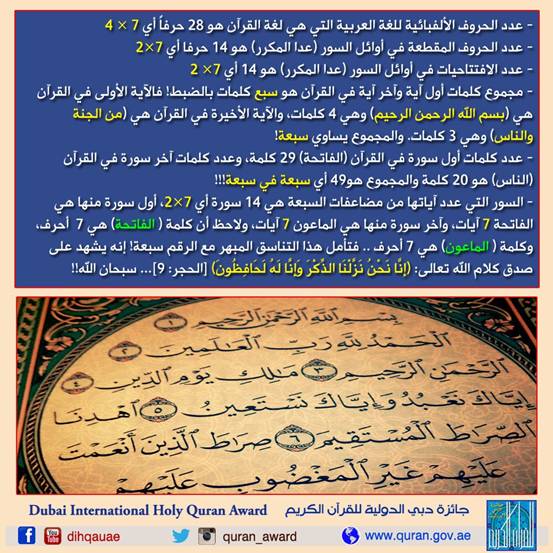 - عدد الحروف الألفبائية للغة العربية التي هي لغة القرآن هو 28 حرفاً أي 7 × 4
- عدد الحروف المقطعة في أوائل السور (عدا المكرر) هو 14 حرفا أي 7×2
- عدد الافتتاحيات في أوائل السور (عدا المكرر) هو 14 أي 7× 2
- مجموع كلمات أول آية وآخر آية في القرآن هو سبع كلمات بالضبط! فالآية الأولى في القرآن
هي (بسم الله الرحمن الرحيم) وهي 4 كلمات، والآية الأخيرة في القرآن هي (من الجنة
والناس) وهي 3 كلمات. والمجموع يساوي سبعة!
- عدد كلمات أول سورة في القرآن (الفاتحة) 29 كلمة، وعدد كلمات آخر سورة في القرآن
(الناس) هو 20 كلمة والمجموع هو49 أي سبعة في سبعة!!!
- السور التي عدد آياتها من مضاعفات السبعة هي 14 سورة أي 7×2، أول سورة منها هي
الفاتحة 7 آيات، وآخر سورة منها هي الماعون 7 آيات، ولاحظ أن كلمة ( الفاتحة) هي 7 أحرف،
وكلمة ( الماعون) هي 7 أحرف .. فتأمل هذا التناسق المبهر مع الرقم سبعة! إنه يشهد على
صدق كلام الله تعالى: (إِنَّا نَحْنُ نَزَّلْنَا الذِّكْرَ وَإِنَّا لَهُ لَحَافِظُونَ) [الحجر: 9]... سبحان الله!!
بِسْمِ اللَّهِ الرَّحْمَٰنِ الرَّحِيمِ ١
الْحَمْدُ لِلَّهِ رَبِّ الْعَالَمِينَ ٢
الرَّحْمَٰنِ الرَّحِيمِ ٣ مَالِكِ يَوْمِ الدِّينِ ٤
إِيَّاكَ نَعْبُدُ وَإِيَّاكَ نَسْتَعِينُ ٥ اهْدِنَا
الصِّرَاطَ الْمُسْتَقِيمَ ٦ صِرَاطَ الَّذِينَ أَنْعَمْتَ
عَلَيْهِمْ غَيْرِ الْمَغْضُوبِ عَلَيْهِمْ
Dubai International Holy Quran Award جائزة دبي الدولية للقرآن الكريم
dihqauae quran_award www.quran.gov.ae